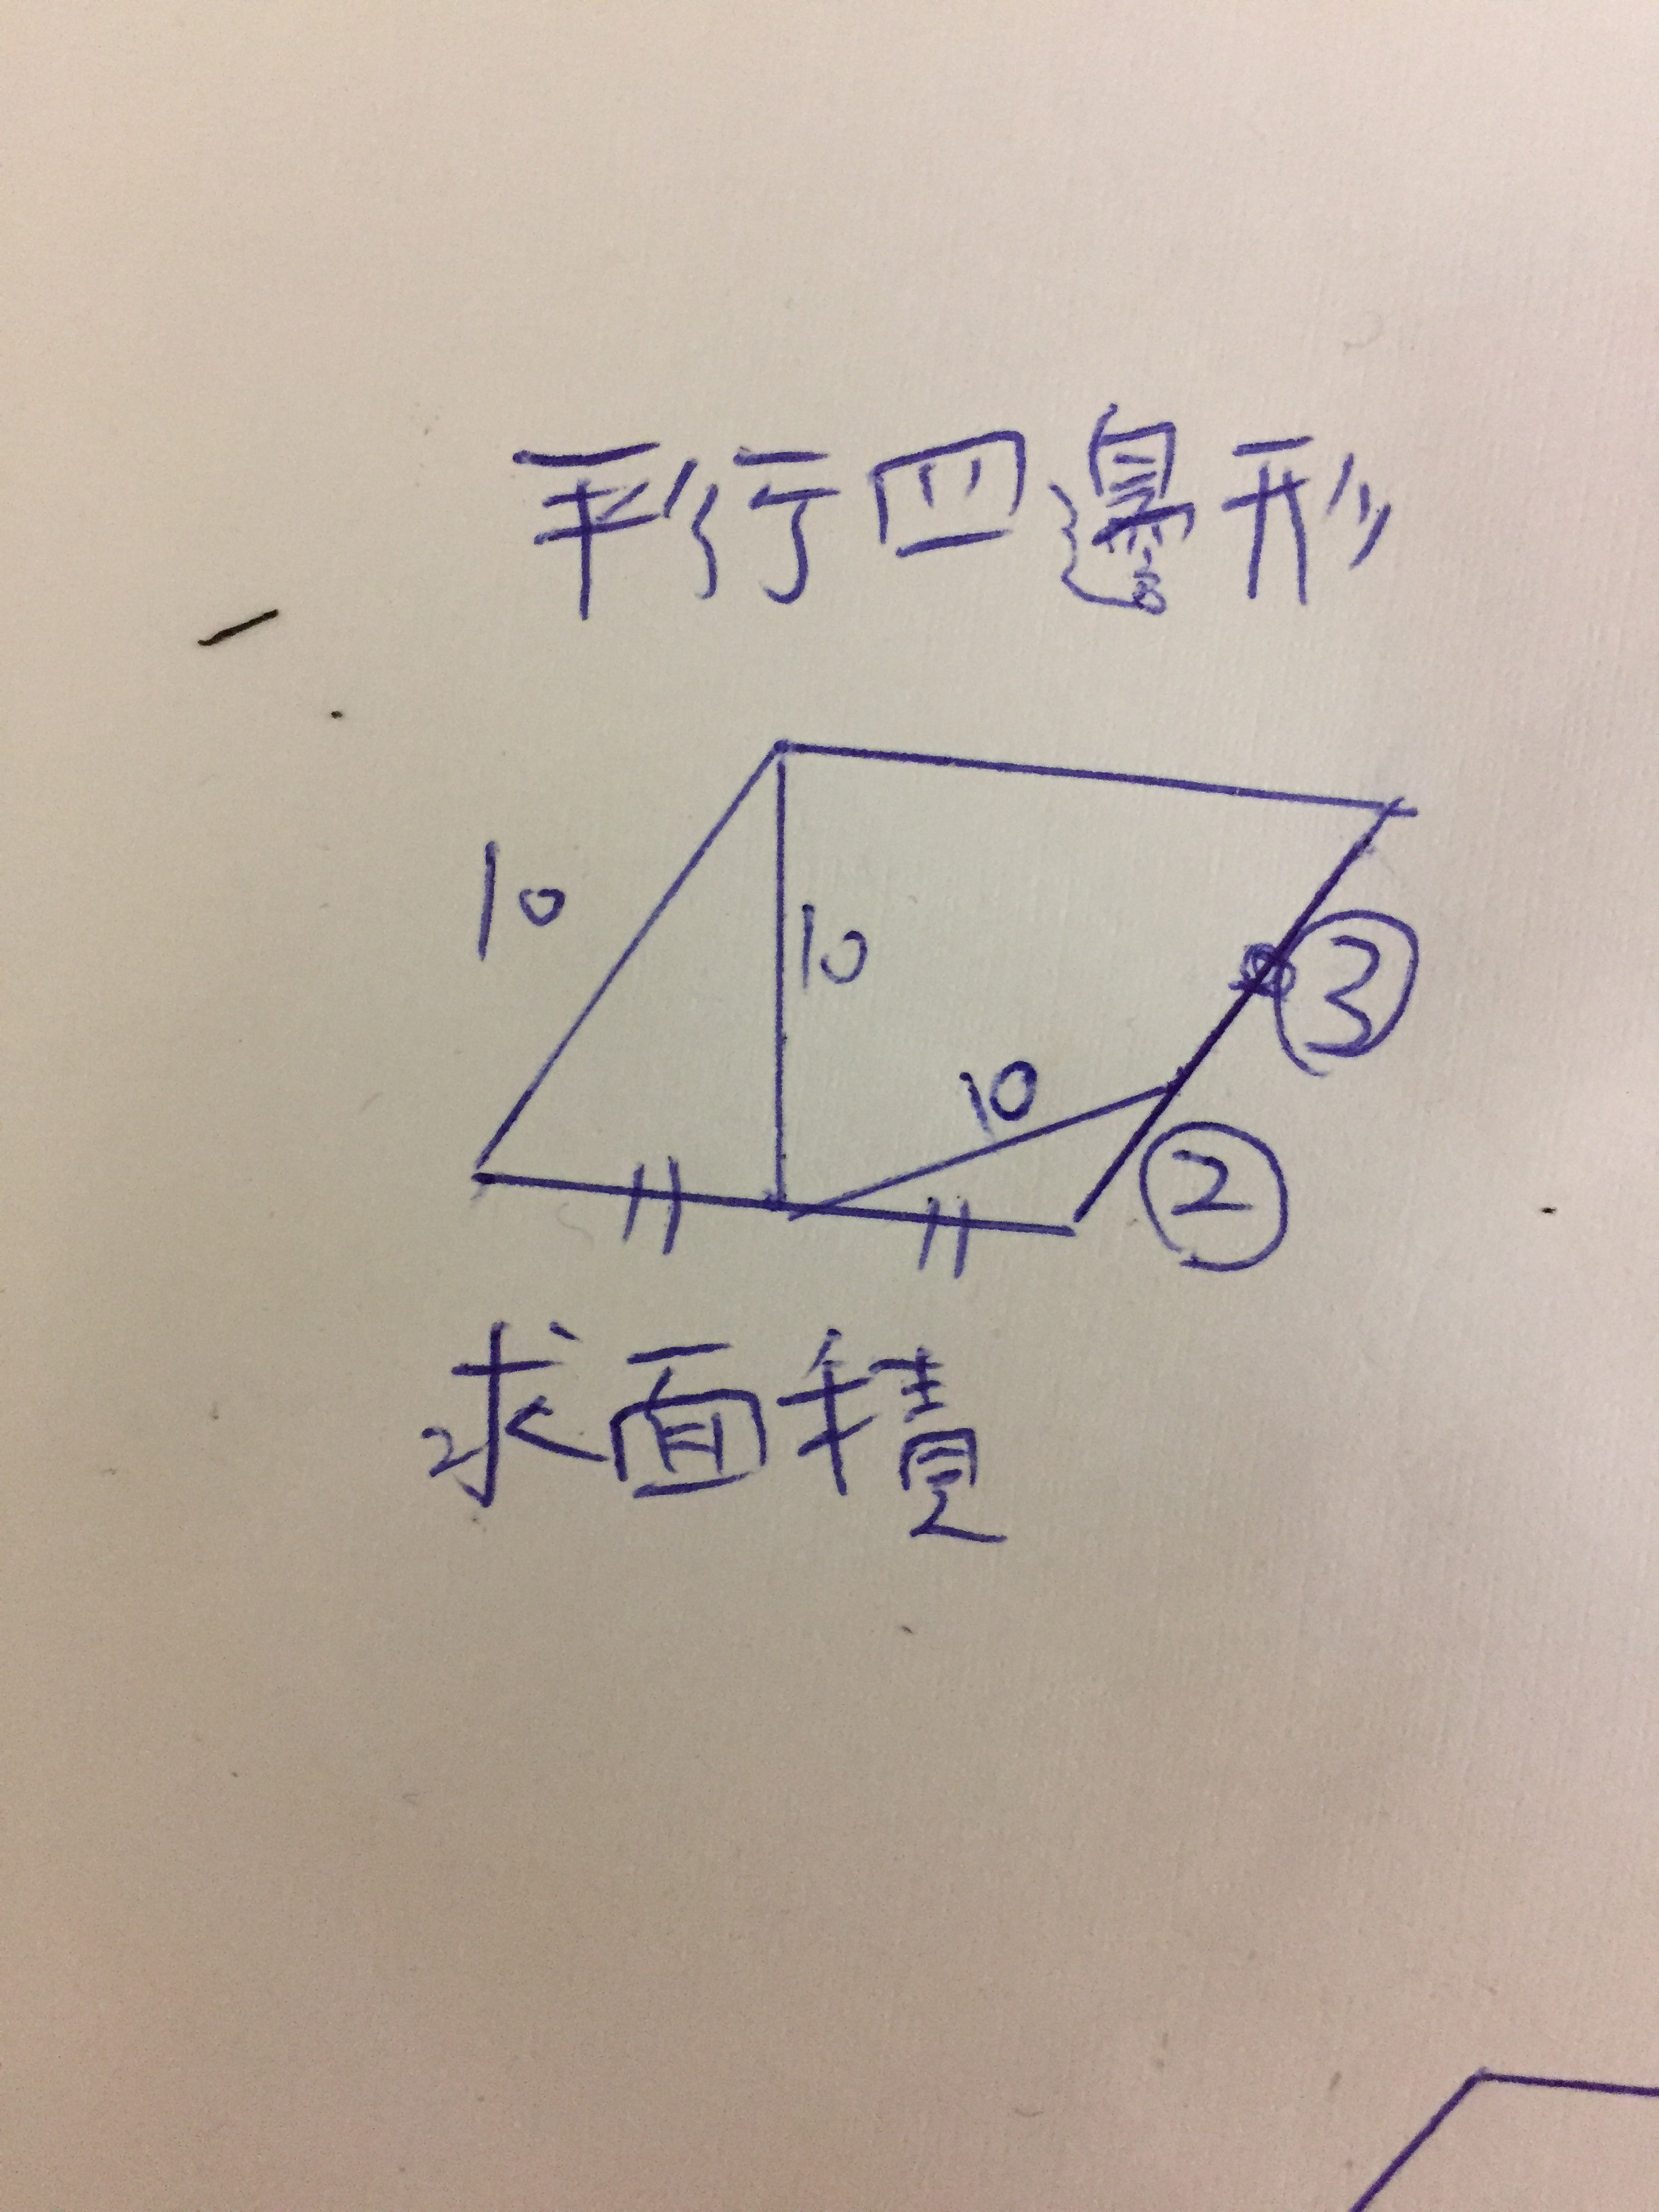 平行四邊形
10
10
③
10
②
求面積